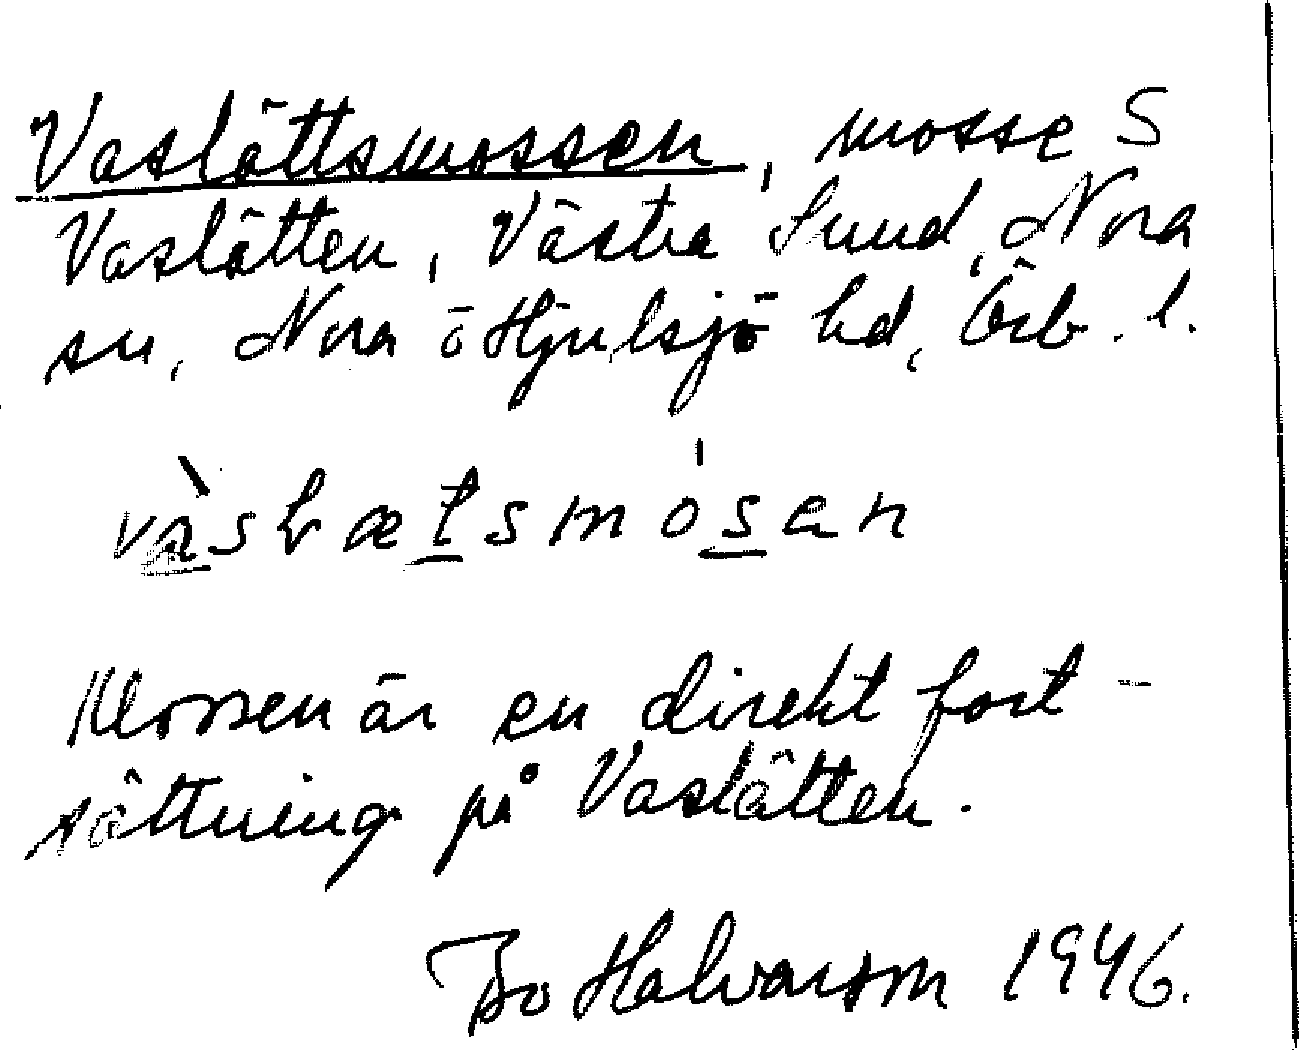 Vaslättsmossen, mosse S
Vaslätten, Västra Sund, Nora
sn, Nora ö Hjulsjö hd, Örb. l.
vàslætsmósan
Mossen är en direkt fort-
sättning på Vaslätten.
Bo Halvarson 1946.